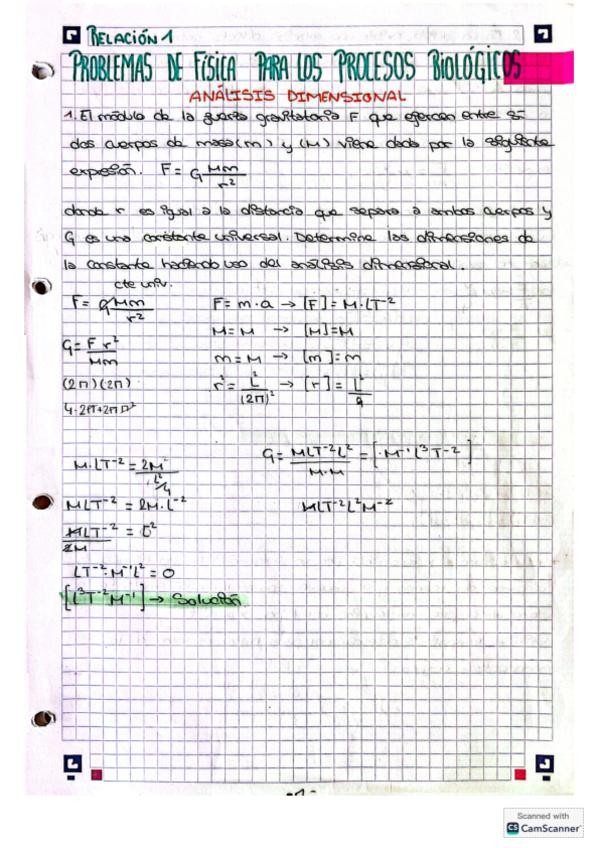 RELACIÓN 1
PROBLEMAS DE FÍSICA PARA LOS PROCESOS BIOLÓGICOS
ANÁLISIS DIMENSIONAL
1. El módulo de la fuerza gravitatoria F que ejercen entre sí
dos cuerpos de masa (m) y (M) viene dada por la siguiente
expresión. F = G Mm/r²
donde r es igual a la distancia que separa a ambos cuerpos y
G es una constante universal. Determine las dimensiones de
la constante haciendo uso del análisis dimensional.
cte univ.
F = G Mm/r²
F = m·a → [F] = M·LT⁻²
M = M → [M] = M
G = F r²/Mm
m = M → [m] = m
(2π)(2π)
r² = L²/(2π)² → [r] = L²/9
G = MLT⁻²L²/M·M = [·M⁻¹L³T⁻²]
M·LT⁻² = 2M²/L²/4
MLT⁻² = 2M·L⁻²
MLT⁻²L²M⁻²
MLT⁻²/2M = L²
LT⁻²·M⁻¹L² = 0
[L³T⁻²M⁻¹] → Solución
-1-
Scanned with
CS CamScanner